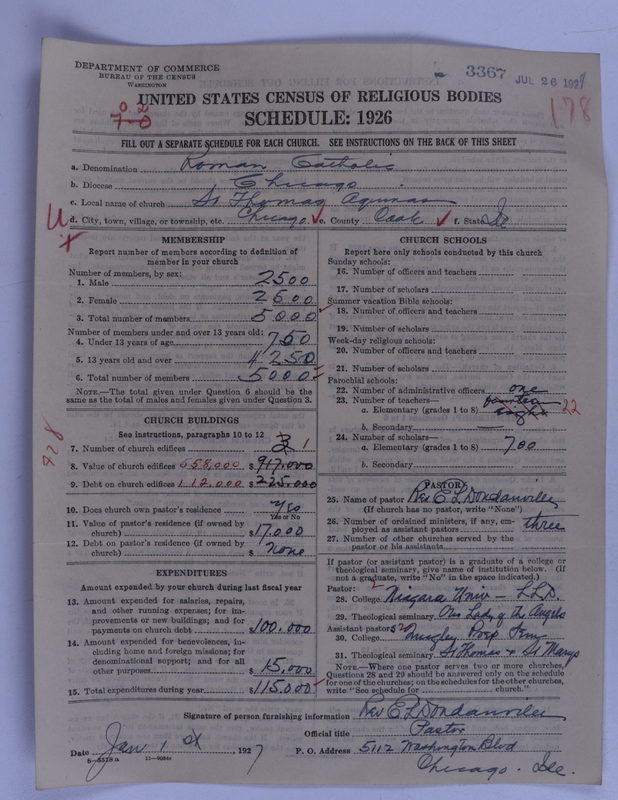 DEPARTMENT OF COMMERCE
BUREAU OF THE CENSUS
WASHINGTON
3367 JUL 26 1927
178
UNITED STATES CENSUS OF RELIGIOUS BODIES
SCHEDULE: 1926
FILL OUT A SEPARATE SCHEDULE FOR EACH CHURCH. SEE INSTRUCTIONS ON THE BACK OF THIS SHEET
a. Denomination Roman Catholic
b. Diocese Chicago
c. Local name of church St Thomas Aquinas
d. City, town, village, or township, etc. Chicago e. County Cook f. State Ill
MEMBERSHIP
Report number of members according to definition of
member in your church
Number of members, by sex:
1. Male 2500
2. Female 2500
3. Total number of members 5000
Number of members under and over 13 years old:
4. Under 13 years of age 750
5. 13 years old and over 4250
6. Total number of members 5000
NOTE.—The total given under Question 6 should be the
same as the total of males and females given under Question 3.
CHURCH BUILDINGS
See instructions, paragraphs 10 to 12
928
7. Number of church edifices 3 1
8. Value of church edifices 558,000 $ 917,000
9. Debt on church edifices 112,000 $ 225,000
10. Does church own pastor's residence? Yes
YES OR NO
11. Value of pastor's residence (if owned by
church) $ 17,000
12. Debt on pastor's residence (if owned by
church) $ none
EXPENDITURES
Amount expended by your church during last fiscal year
13. Amount expended for salaries, repairs,
and other running expenses; for im-
provements or new buildings; and for
payments on church debt $ 100,000
14. Amount expended for benevolences, in-
cluding home and foreign missions; for
denominational support; and for all
other purposes $ 15,000
15. Total expenditures during year $ 115,000
CHURCH SCHOOLS
Report here only schools conducted by this church
Sunday schools:
16. Number of officers and teachers
17. Number of scholars
Summer vacation Bible schools:
18. Number of officers and teachers
19. Number of scholars
Week-day religious schools:
20. Number of officers and teachers
21. Number of scholars
Parochial schools:
22. Number of administrative officers one
23. Number of teachers— fourteen
a. Elementary (grades 1 to 8) eight 22
b. Secondary —
24. Number of scholars—
a. Elementary (grades 1 to 8) 700
b. Secondary
PASTOR
25. Name of pastor Rev E L Dondanville
(If church has no pastor, write "None")
26. Number of ordained ministers, if any, em-
ployed as assistant pastors three
27. Number of other churches served by the
pastor or his assistants
If pastor (or assistant pastor) is a graduate of a college or
theological seminary, give name of institution below. (If
not a graduate, write "No" in the space indicated.)
Pastor:
28. College Niagara Univ — LL.D.
29. Theological seminary Our Lady of the Angels
Assistant pastor: 2
30. College Quigley Prep Sem
31. Theological seminary St Thomas + St Marys
NOTE.—Where one pastor serves two or more churches,
Questions 28 and 29 should be answered only on the schedule
for one of the churches; on the schedules for the other churches,
write "See schedule for church."
Signature of person furnishing information Rev E L Dondanville
Official title Pastor
Date Jan 1st 1927 P. O. Address 5112 Washington Blvd
8—5518a 11—9084a Chicago. Ill.